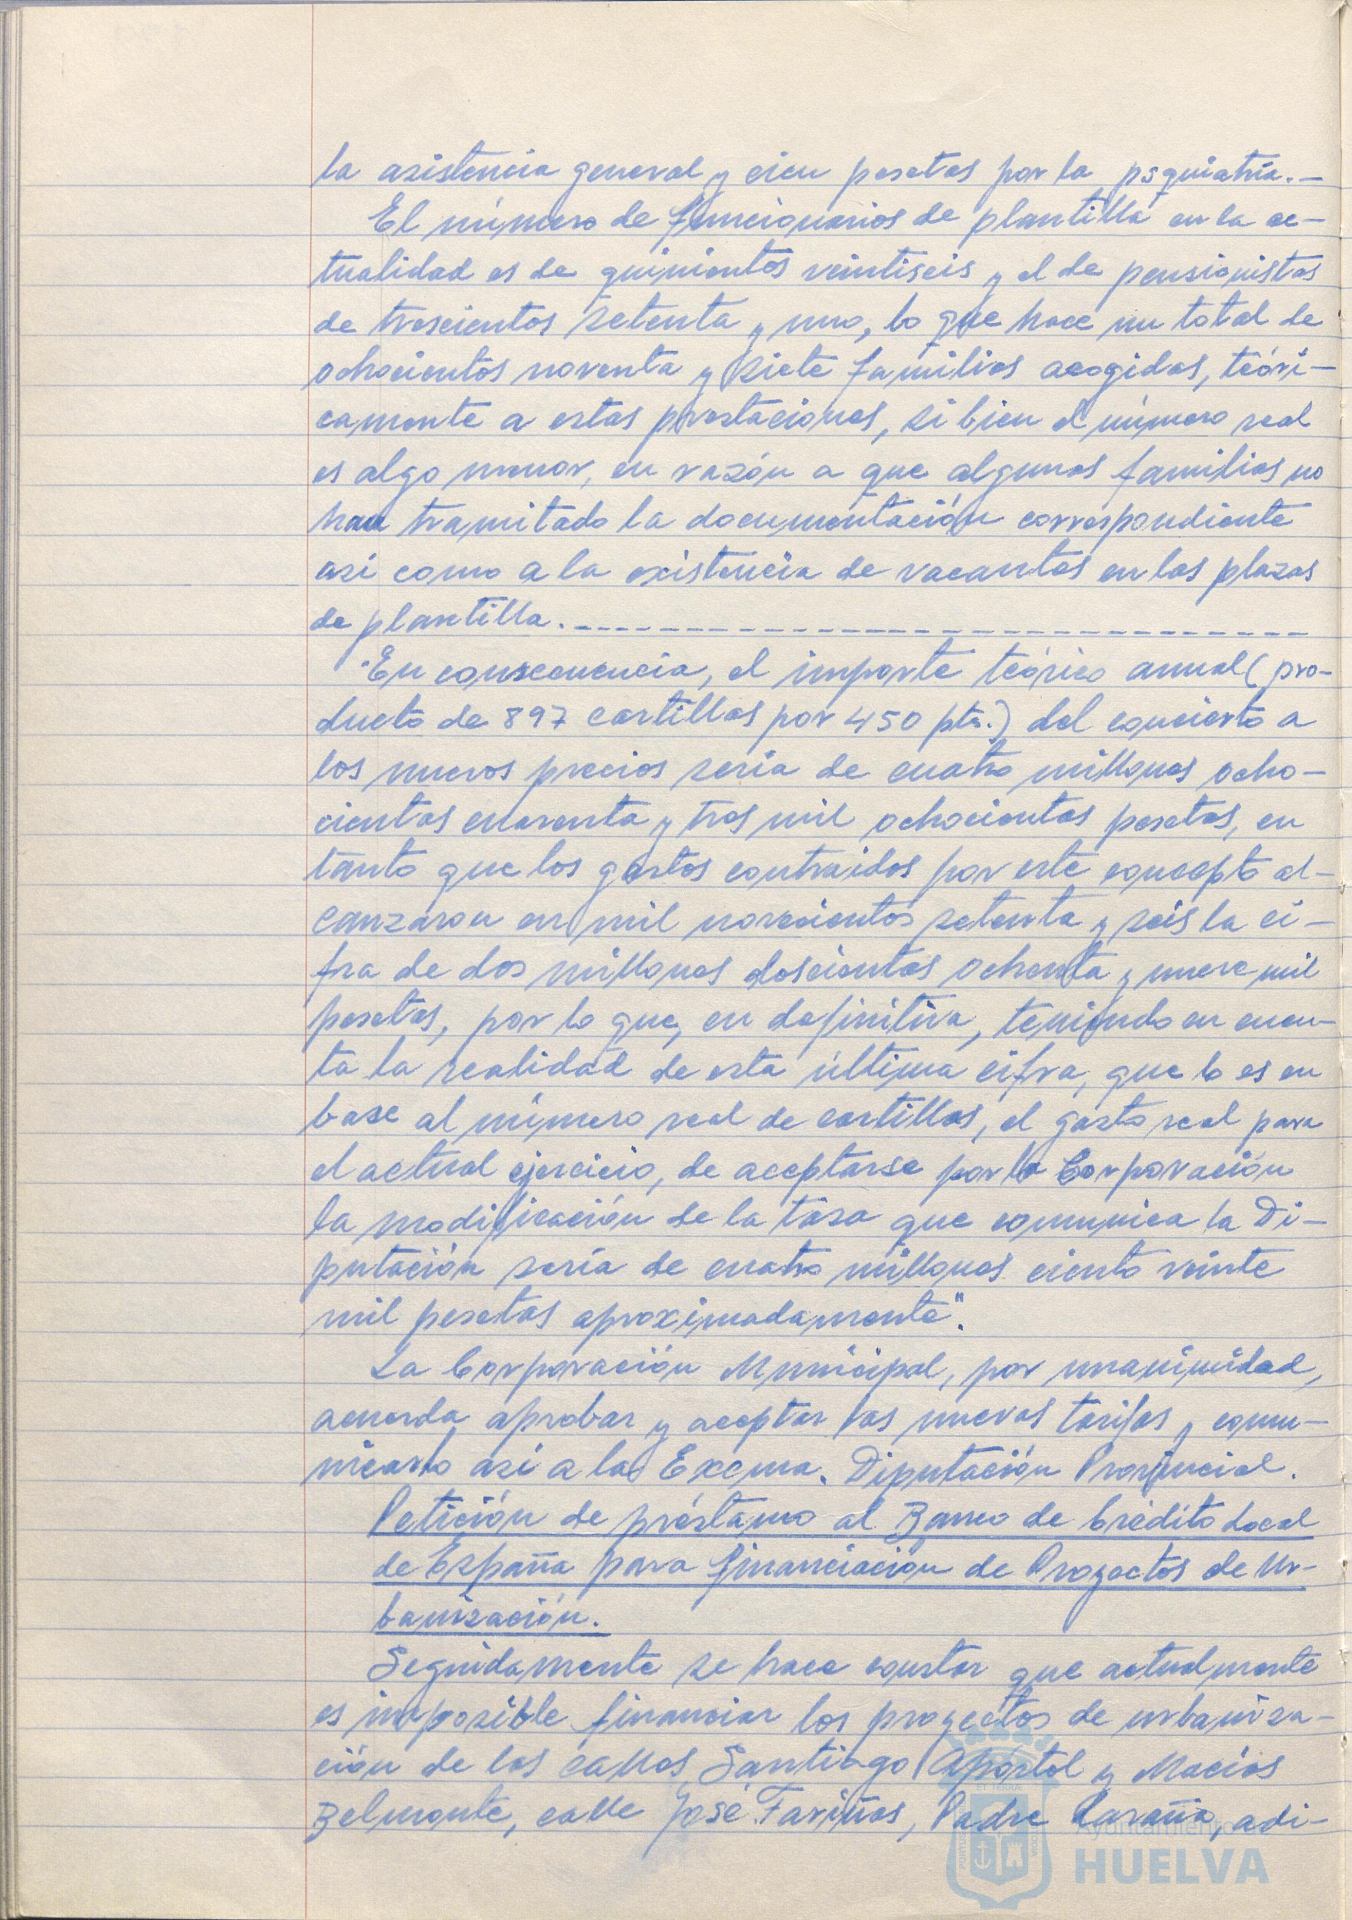 la asistencia general y cien pesetas por la psquiatria.—
El número de funcionarios de plantilla en la ac-
tualidad es de quinientos veintiseis y el de pensionistas
de trescientos setenta y uno, lo que hace un total de
ochocientos noventa y siete familias acogidas, teóri-
camente a estas prestaciones, si bien el número real
es algo menor, en razón a que algunas familias no
han tramitado la documentación correspondiente
asi como a la existencia de vacantes en las plazas
de plantilla.------------------------------
"En consecuencia, el importe teórico anual (pro-
ducto de 897 cartillas por 450 pts.) del concierto a
los nuevos precios seria de cuatro millones ocho-
cientas cuarenta y tres mil ochocientas pesetas, en
tanto que los gastos contraidos por este concepto al-
canzaron en mil novecientos setenta y seis la ci-
fra de dos millones doscientas ochenta y nueve mil
pesetas, por lo que, en definitiva, teniendo en cuen-
ta la realidad de esta última cifra, que lo es en
base al número real de cartillas, el gasto real para
el actual ejercicio, de aceptarse por la Corporación
la modificación de la tasa que comunica la Di-
putación sería de cuatro millones ciento veinte
mil pesetas aproximadamente".
La Corporación Municipal, por unanimidad,
acuerda aprobar y aceptar las nuevas tarifas y comu-
nicarlo asi a la Excma. Diputación Provincial.
Petición de préstamo al Banco de Crédito Local
de España para financiación de Proyectos de Ur-
banización.
Seguidamente se hace constar que actualmente
es imposible financiar los proyectos de urbaniza-
ción de las calles Santiago Apóstol y Macías
Belmonte, calle José Fariñas, Padre Laraña, adi-
Ayuntamiento de
HUELVA